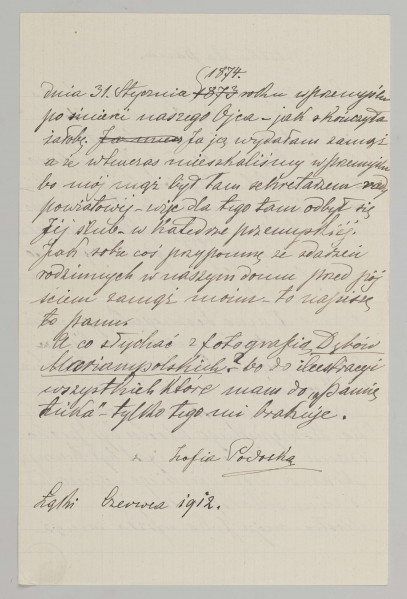 1874.
dnia 31. Stycznia 1873 roku w Przemyślu
po śmierci naszego Ojca – jak skończyła
żałobę. Ja ją wydałam zamąż
a że wówczas mieszkaliśmy w Przemyślu
bo mój mąż był tam sekretarzem
powiatowij – więc dla tego tam odbył się
Jej ślub – w katedrze przemyskiej.
Jak sobie coś przypomnę ze zdarzeń
rodzinnych w naszym domu przed pój
ściem zamąż moim – to napiszę
to panu.
A co słychać z fotografią Dębów
Maryampolskich? bo do ilustracyi
wszystkich które mam do "Pamię
tnika" – tylko tego mi brakuje.
Zofia Podoska
Czerwca 1912.